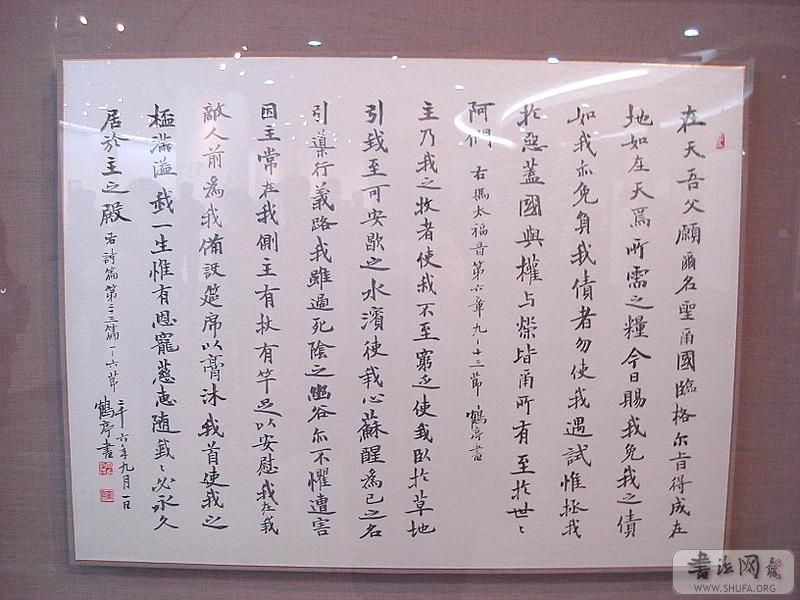 在天吾父願爾名聖爾國臨格尔旨得成在
地如在天焉所需之糧今日賜我免我之債
如我亦免負我債者勿使我遇試惟拯我
於惡蓋國與權与榮皆爾所有至於世〻
阿們 右馬太福音第六章九-十三節 鶴亭書
主乃我之牧者使我不至窮乏使我臥於草地
引我至可安歇之水濱使我心蘇醒為己之名
引導行義路我雖過死陰之幽谷亦不懼遭害
因主常在我側主有杖有竿足以安慰我在我
敵人前為我備設筵席以膏沐我首使我之
桮滿溢我一生惟有恩寵慈惠隨我〻必永久
居於主之殿 右詩篇第二十三篇一-六節
二千六年九月一日
鶴亭書
书法网
WWW.SHUFA.ORG